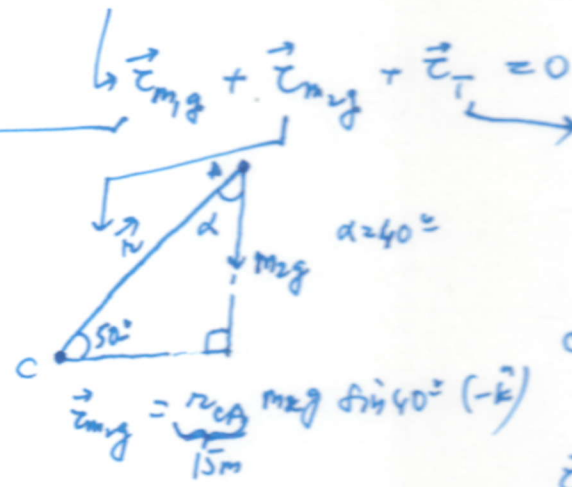 τ⃗_{m₁g} + τ⃗_{m₂g} + τ⃗_T = 0
A
r⃗
α
α=40°
m₂g
50°
C
τ⃗_{m₂g} = r_{CA} m₂g sin 40° (-k̂)
15m